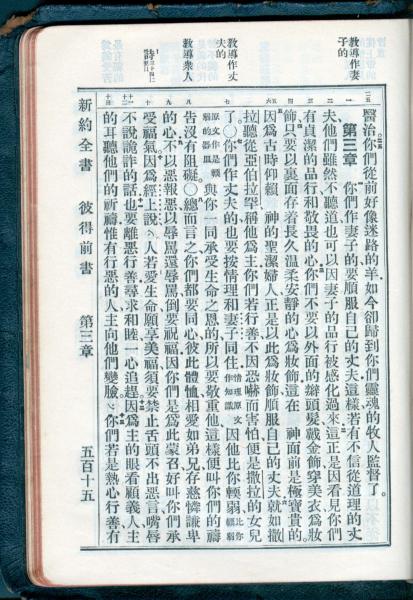 教導作妻子的
教導作丈夫的
教導衆人
醫治你們從前好像迷路的羊如今卻歸到你們靈魂的牧人監督了。
第三章 你們作妻子的要順服自己的丈夫這樣若有不信從道理的丈
夫他們雖然不聽道也可以因妻子的品行被感化過來這正是因看見你們
有貞潔的品行和敬畏的心你們不要以外面的辮頭髮戴金飾穿美衣爲妝
飾只要以裏面存着長久溫柔安靜的心爲妝飾這在 神面前是極寶貴的。
因爲古時仰賴 神的聖潔婦人正是以此爲妝飾順服自己的丈夫就如撒
拉聽從亞伯拉罕稱他爲主你們若行善不因恐嚇而害怕便是撒拉的女兒
了○你們作丈夫的也要按情理和妻子同住 情理原文作知識 因他比你輭弱 比你輭弱
原文作是輭弱的器皿 與你一同承受生命之恩的所以要敬重他這樣便叫你們的禱
告沒有阻礙○總而言之你們都要同心彼此體恤相愛如弟兄存慈憐謙卑
的心不以惡報惡以辱罵還辱罵倒要祝福因你們是爲此蒙召好叫你們承
受福氣因爲經上說人若愛生命願享美福須要禁止舌頭不出惡言嘴脣
不說詭詐的話也要離惡行善尋求和睦一心追趕因爲主的眼看顧義人主
的耳聽他們的祈禱惟有行惡的人主向他們變臉你們若是熱心行善有
新約全書 彼得前書 第三章 五百十五